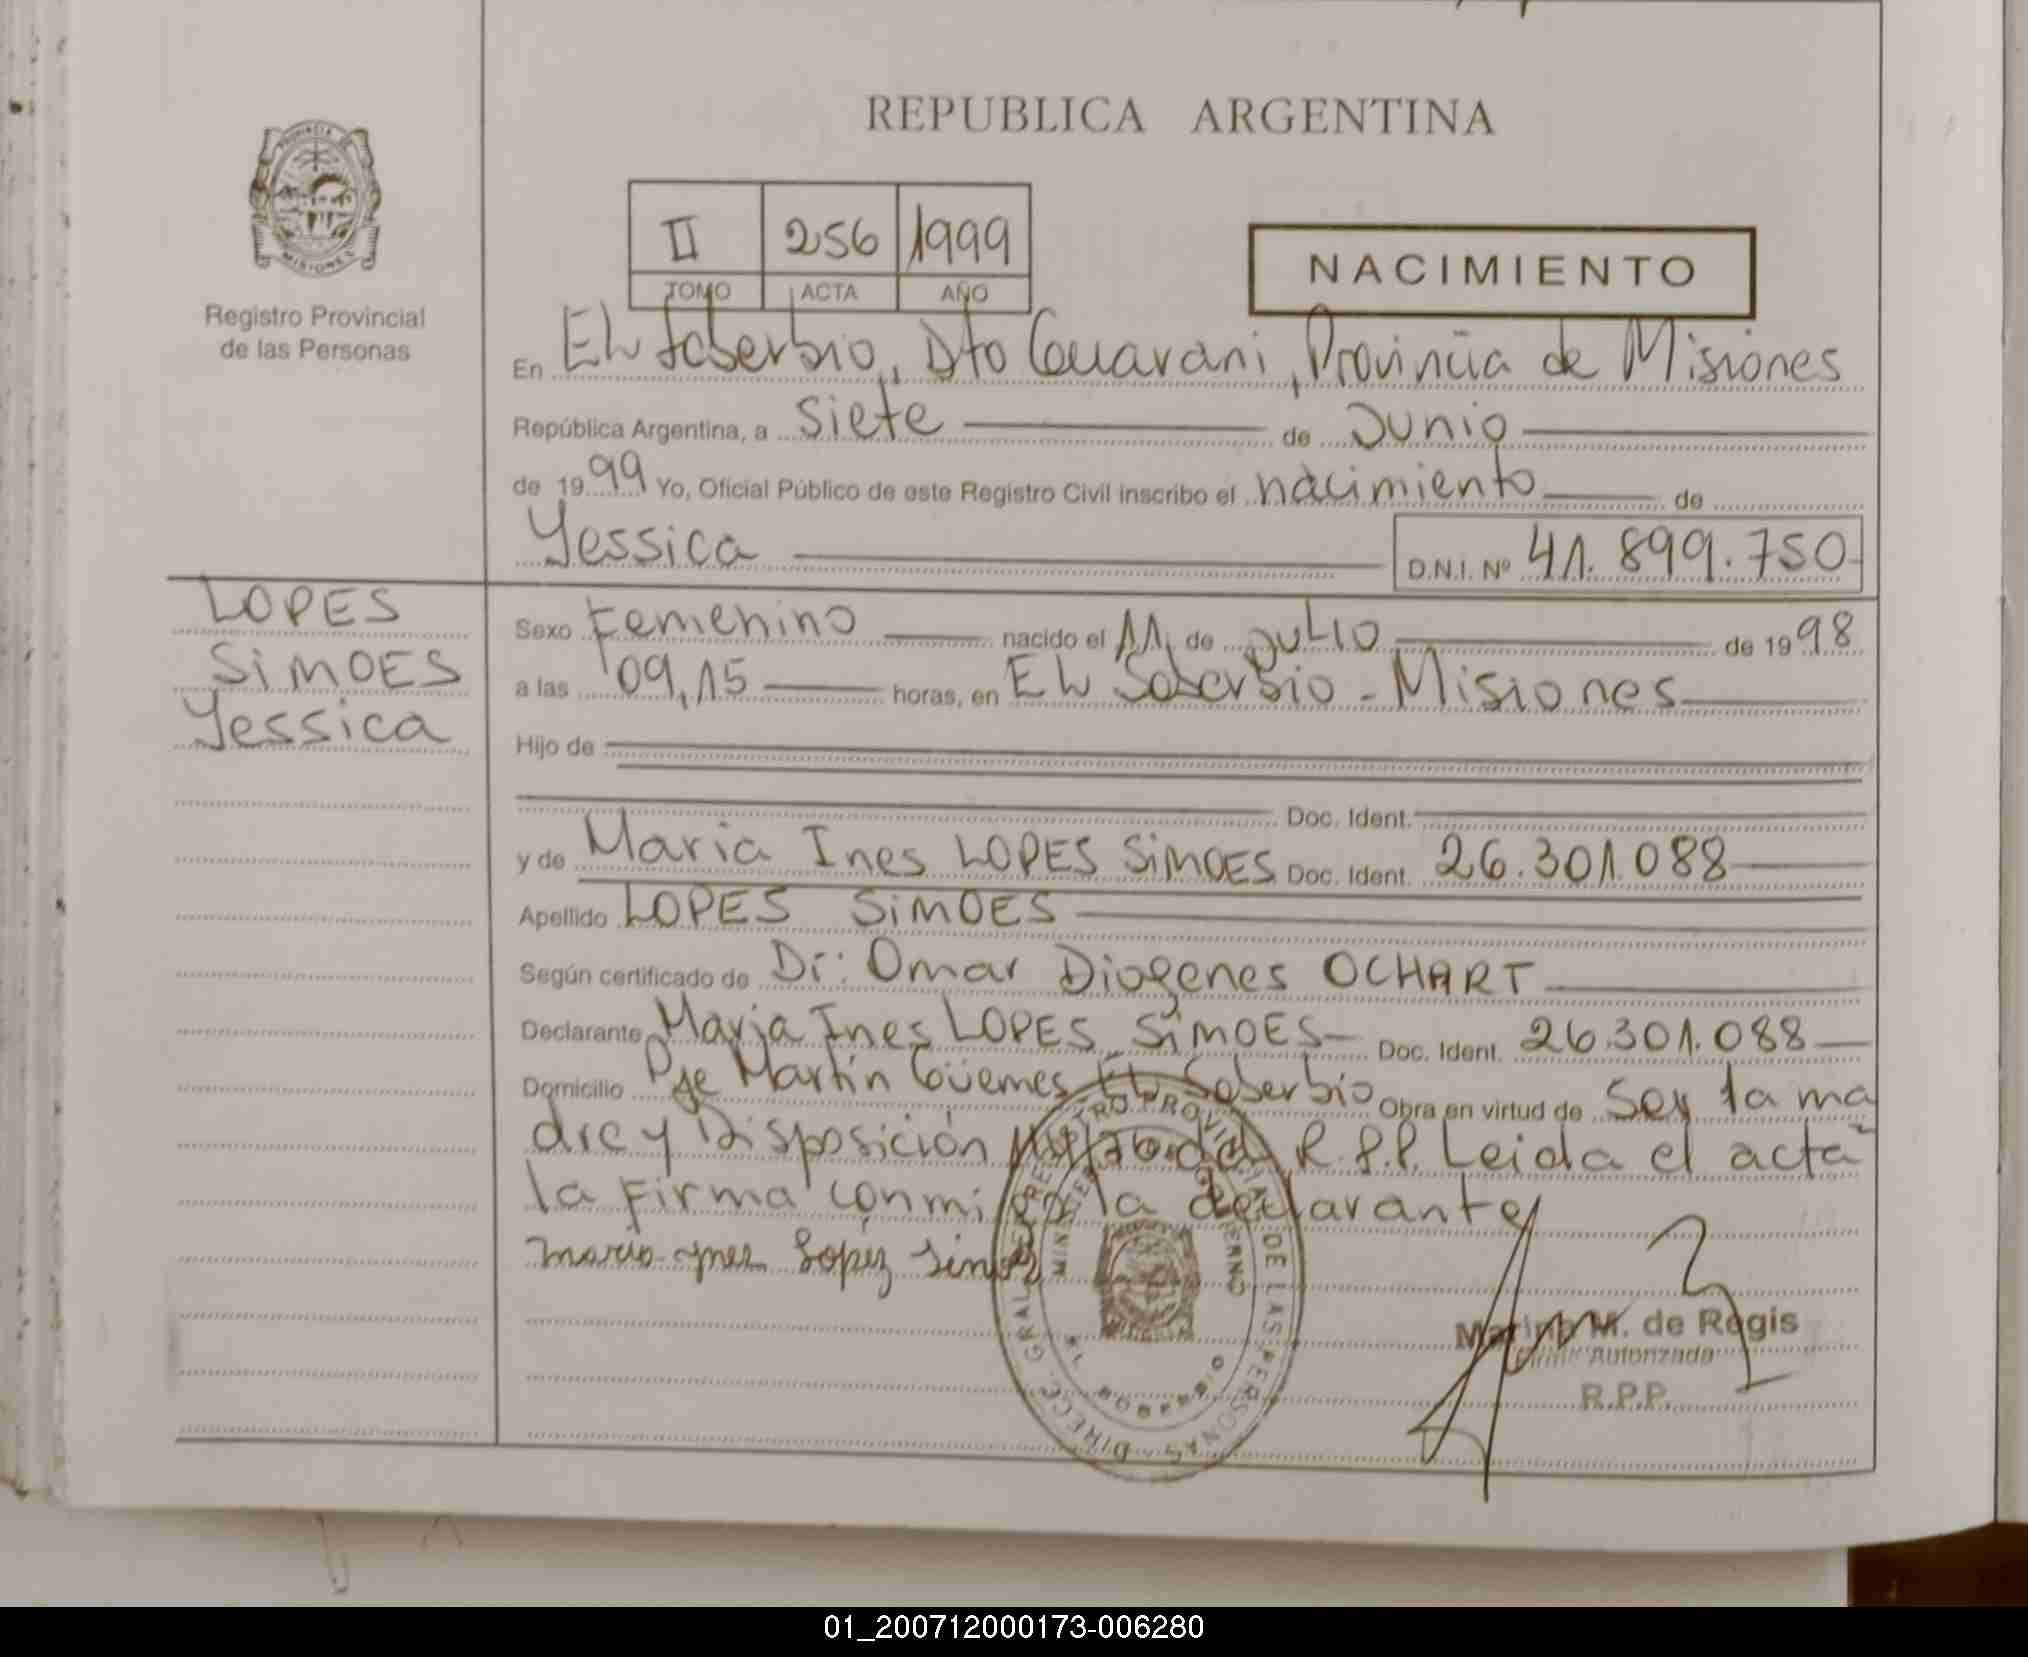 REPUBLICA ARGENTINA
PROVINCIA
MISIONES
Registro Provincial
de las Personas
II 256 1999
TOMO ACTA AÑO
NACIMIENTO
En El Soberbio, Dto Guarani, Provincia de Misiones
República Argentina, a siete de Junio
de 1999 Yo, Oficial Público de este Registro Civil inscribo el nacimiento de
Yessica D.N.I. Nº 41.899.750
LOPES
SiMOES
Yessica
Sexo Femenino nacido el 11 de Julio de 1998
a las 09,15 horas, en El Soberbio - Misiones
Hijo de
Doc. Ident.
y de Maria Ines LOPES SiMOES Doc. Ident. 26.301.088
Apellido LOPES SiMOES
Según certificado de Dr: Omar Diogenes OCHART
Declarante Maria Ines LOPES SiMOES Doc. Ident. 26.301.088
Domicilio Pje Martín Güemes El Soberbio Obra en virtud de Ser la ma
dre y Disposición R.P.P. Leida el acta
la Firma conmigo la declarante
Maria Ynes Lopez Simoes
DIRECC. GRAL. REGISTRO PROVINCIAL DE LAS PERSONAS
EL SOBERBIO
M. de Regis
Firma Autorizada
R.P.P.
01_200712000173-006280